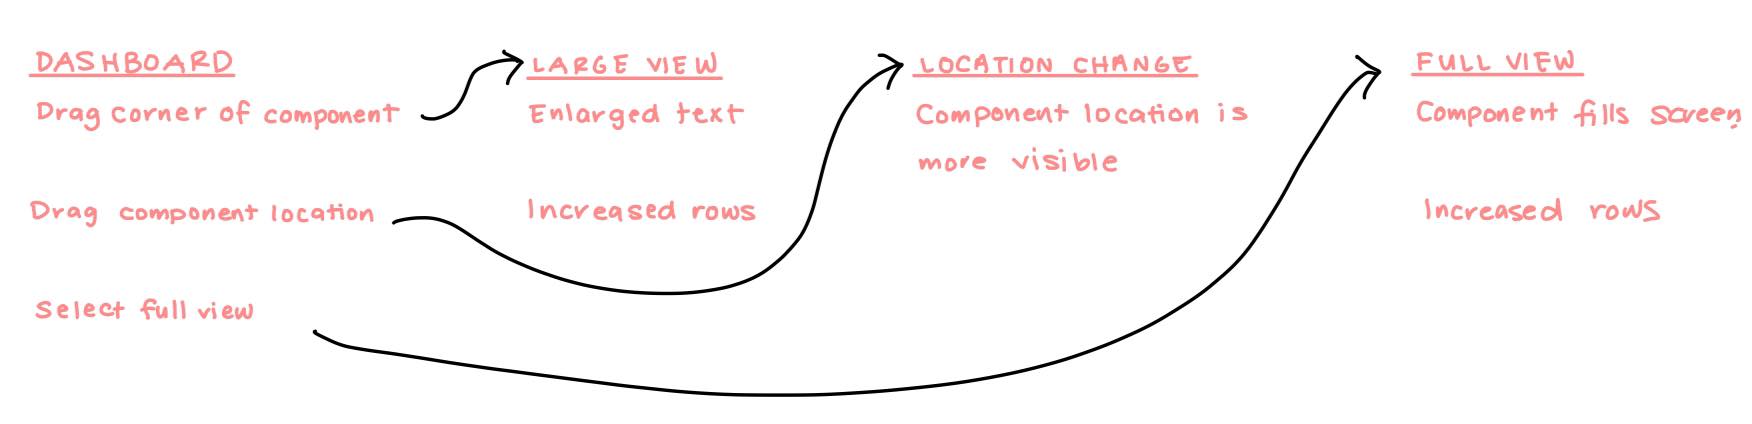 DASHBOARD
Drag corner of component
Drag component location
Select full view
LARGE VIEW
Enlarged text
Increased rows
LOCATION CHANGE
Component location is
more visible
FULL VIEW
Component fills screen
Increased rows